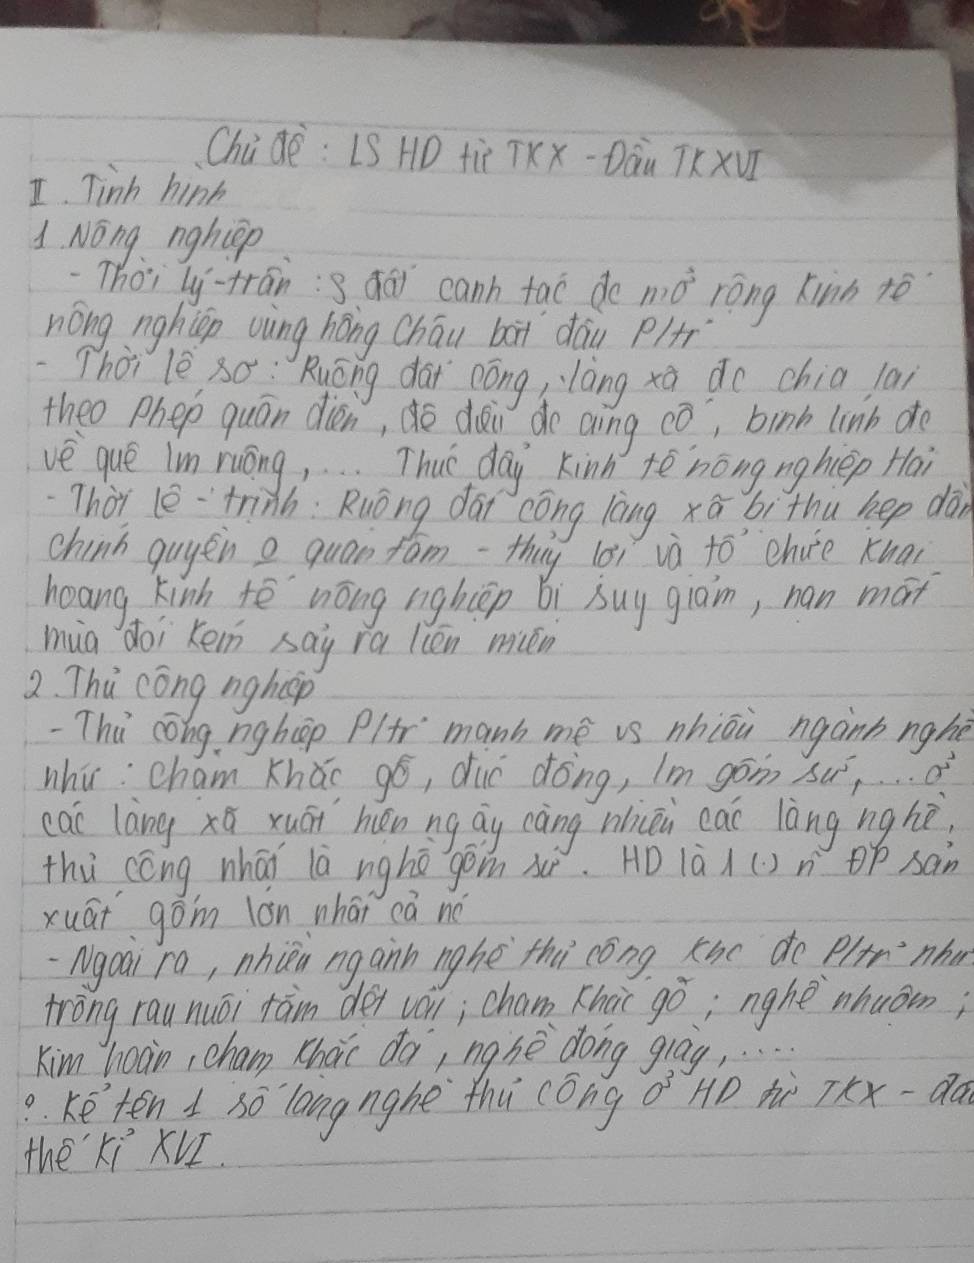 Chủ đề: LS HD từ TKX - Đầu TK XVI
II. Tình hình
1. Nông nghiệp
- Thời lý-trần: S đất canh tác đc mở rộng kinh tế
nông nghiệp vùng hồng Châu bắt đầu P/tr
- Thời lê sơ: Ruộng đất công, làng xã đc chia lại
theo phép quân điền, đê điều đc củng cố, binh lính đc
về quê lm ruộng, ... Thúc đẩy kinh tế nông nghiệp Hải
- Thời lê - trịnh: Ruộng đất công làng xã bị thu hẹp dần
chính quyền o quan tâm - thủy lợi và tổ chức khai
hoang kinh tế nông nghiệp bị suy giảm, nạn mất
mùa đói kém sảy ra liên miên
2. Thủ công nghiệp
- Thủ công nghiệp P/tr mạnh mẽ vs nhiều ngành nghề
như: Chạm khắc gỗ, đúc đồng, lm gốm sứ, ... ở
các làng xã xuất hiện ngày càng nhiều các làng nghề,
thủ công nhất là nghề gốm sứ. HD là 1 (.) n~ ĐP sản
xuất gốm lớn nhất cả nc
- Ngoài ra, nhiều ngành nghề thủ công khc đc P/tr như
trồng rau nuôi tằm dệt vải; chạm khắc gỗ; nghề nhuộm;
kim hoàn, chạm khắc đá, nghề đóng giày, ....
?. Kể tên 1 số làng nghề thủ công ở HD từ TKX - đầu
thế kỉ XVI.